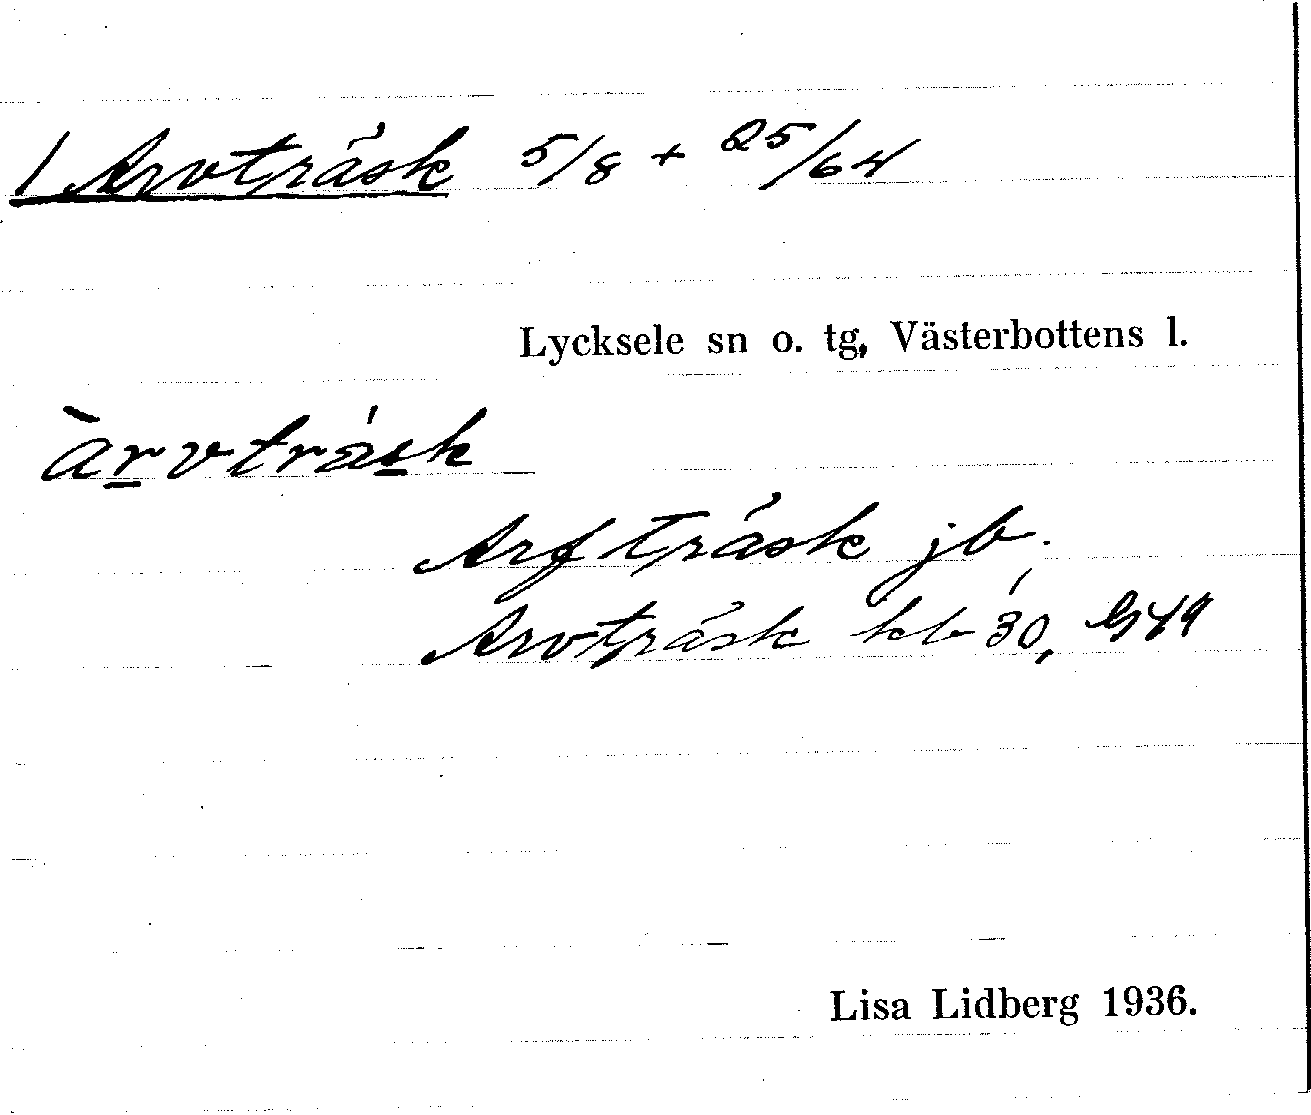 1 Arvträsk 5/8 + 25/64
Lycksele sn o. tg, Västerbottens l.
àrvträsk
Arfträsk jb.
Arvträsk kb 30, G49
Lisa Lidberg 1936.